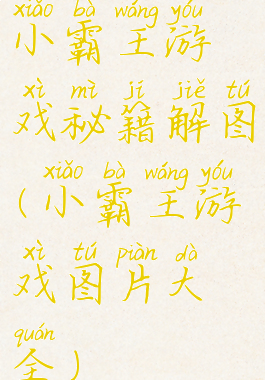 xiǎo bà wáng yóu
小霸王游
xì mì jí jiě tú
戏秘籍解图
xiǎo bà wáng yóu
(小霸王游
xì tú piàn dà
戏图片大
quán
全)